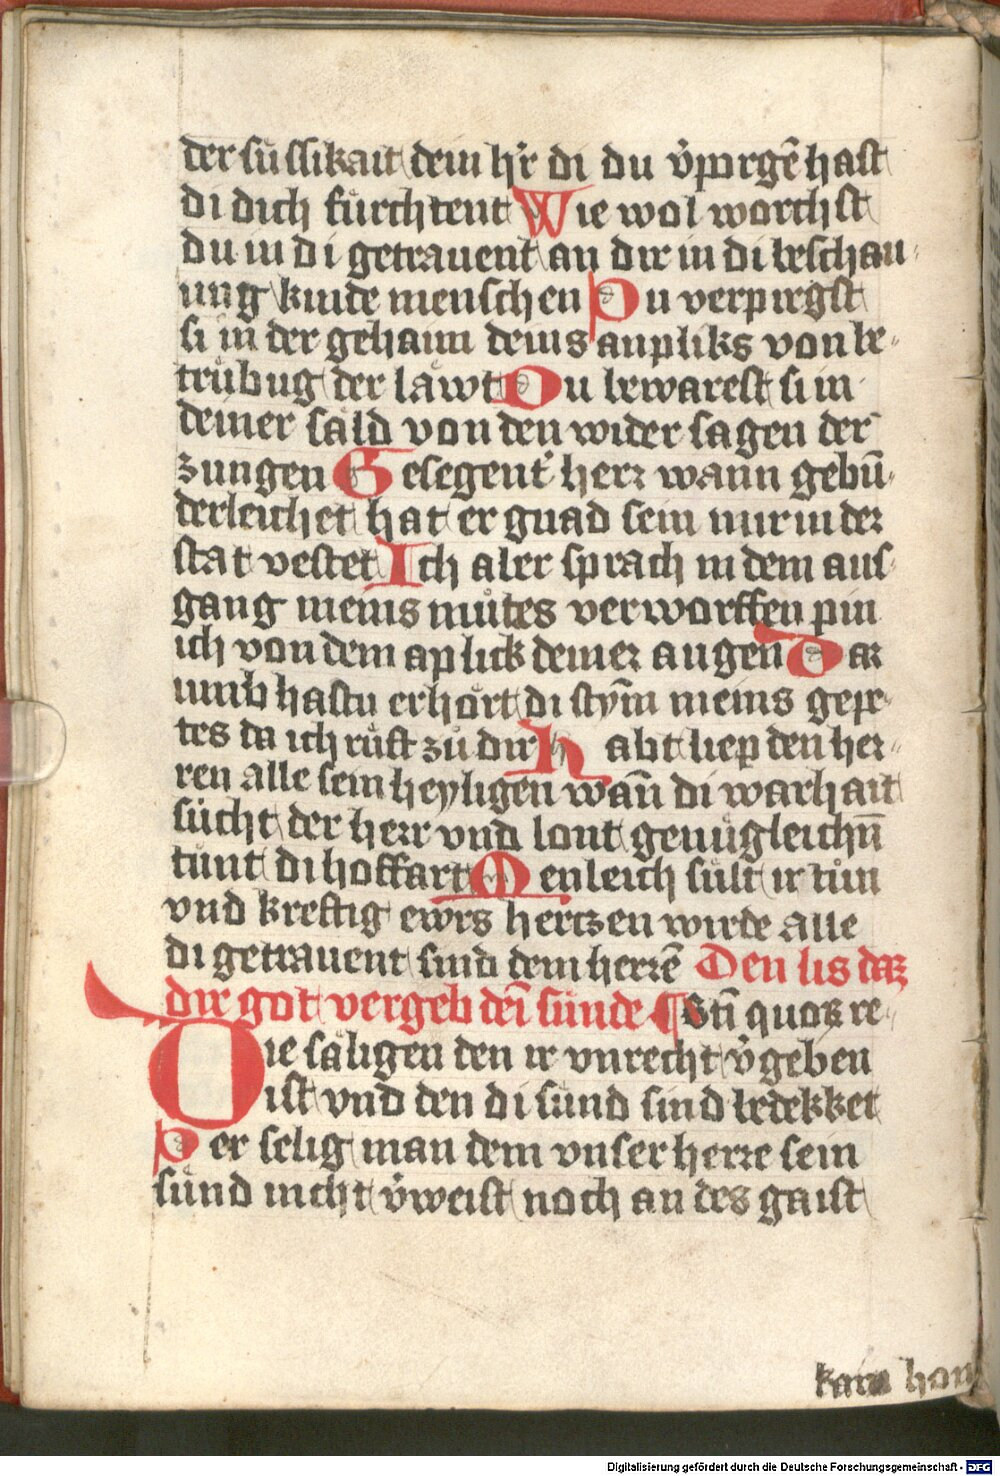 der süssikait dein hr̄ di du v̓porgē hast
di dich fürchtent Wie wol worchst
du in di getrauent an dir in di beschau-
ung kinde menschen Du verpirgst
si in der gehaim deins anpliks von be-
trübug der läwt Du bewarest si in
deiner säld von den wider sagen der
zungen Gesegent herz wann gebū-
derleichet hat er gnad sein mir in der
stat vestet Ich aber sprach in dem aus
gang meins mütes verworffen pin
ich von dem aplick deiner augen Dar
umb hastu erhört di stym̄ meins gepe-
tes da ich rüft zů dir Habt liep den her-
ren alle sein heyligen wañ di warhait
sücht der herr vnd lont genügleichn̄
tünt di hoffart Menleich sült ir tün
vnd kreftig ewrs hertzen wirde alle
di getrauent sind dem herrē Den lis daz
dir got vergeb deī sünde ¶ Btī quorꝝ re-
Die säligen den ir vnrecht v̓geben
ist vnd den di sünd sind bedekket
Der selig man dem vnser herre sein
sünd nicht v̓weist noch an des gaist
kain hon
Digitalisierung gefördert durch die Deutsche Forschungsgemeinschaft - DFG